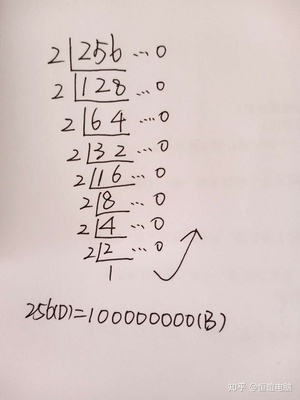 2 256 ... 0
2 128 ... 0
2 64 ... 0
2 32 ... 0
2 16 ... 0
2 8 ... 0
2 4 ... 0
2 2 ... 0
1
256(D)=100000000(B)
知乎 @恒盾电脑